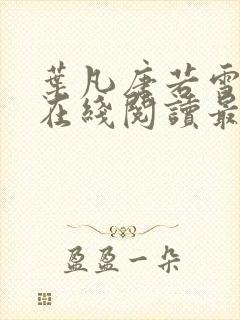 葉凡唐若雪
在綫閱讀最
盈盈一朵